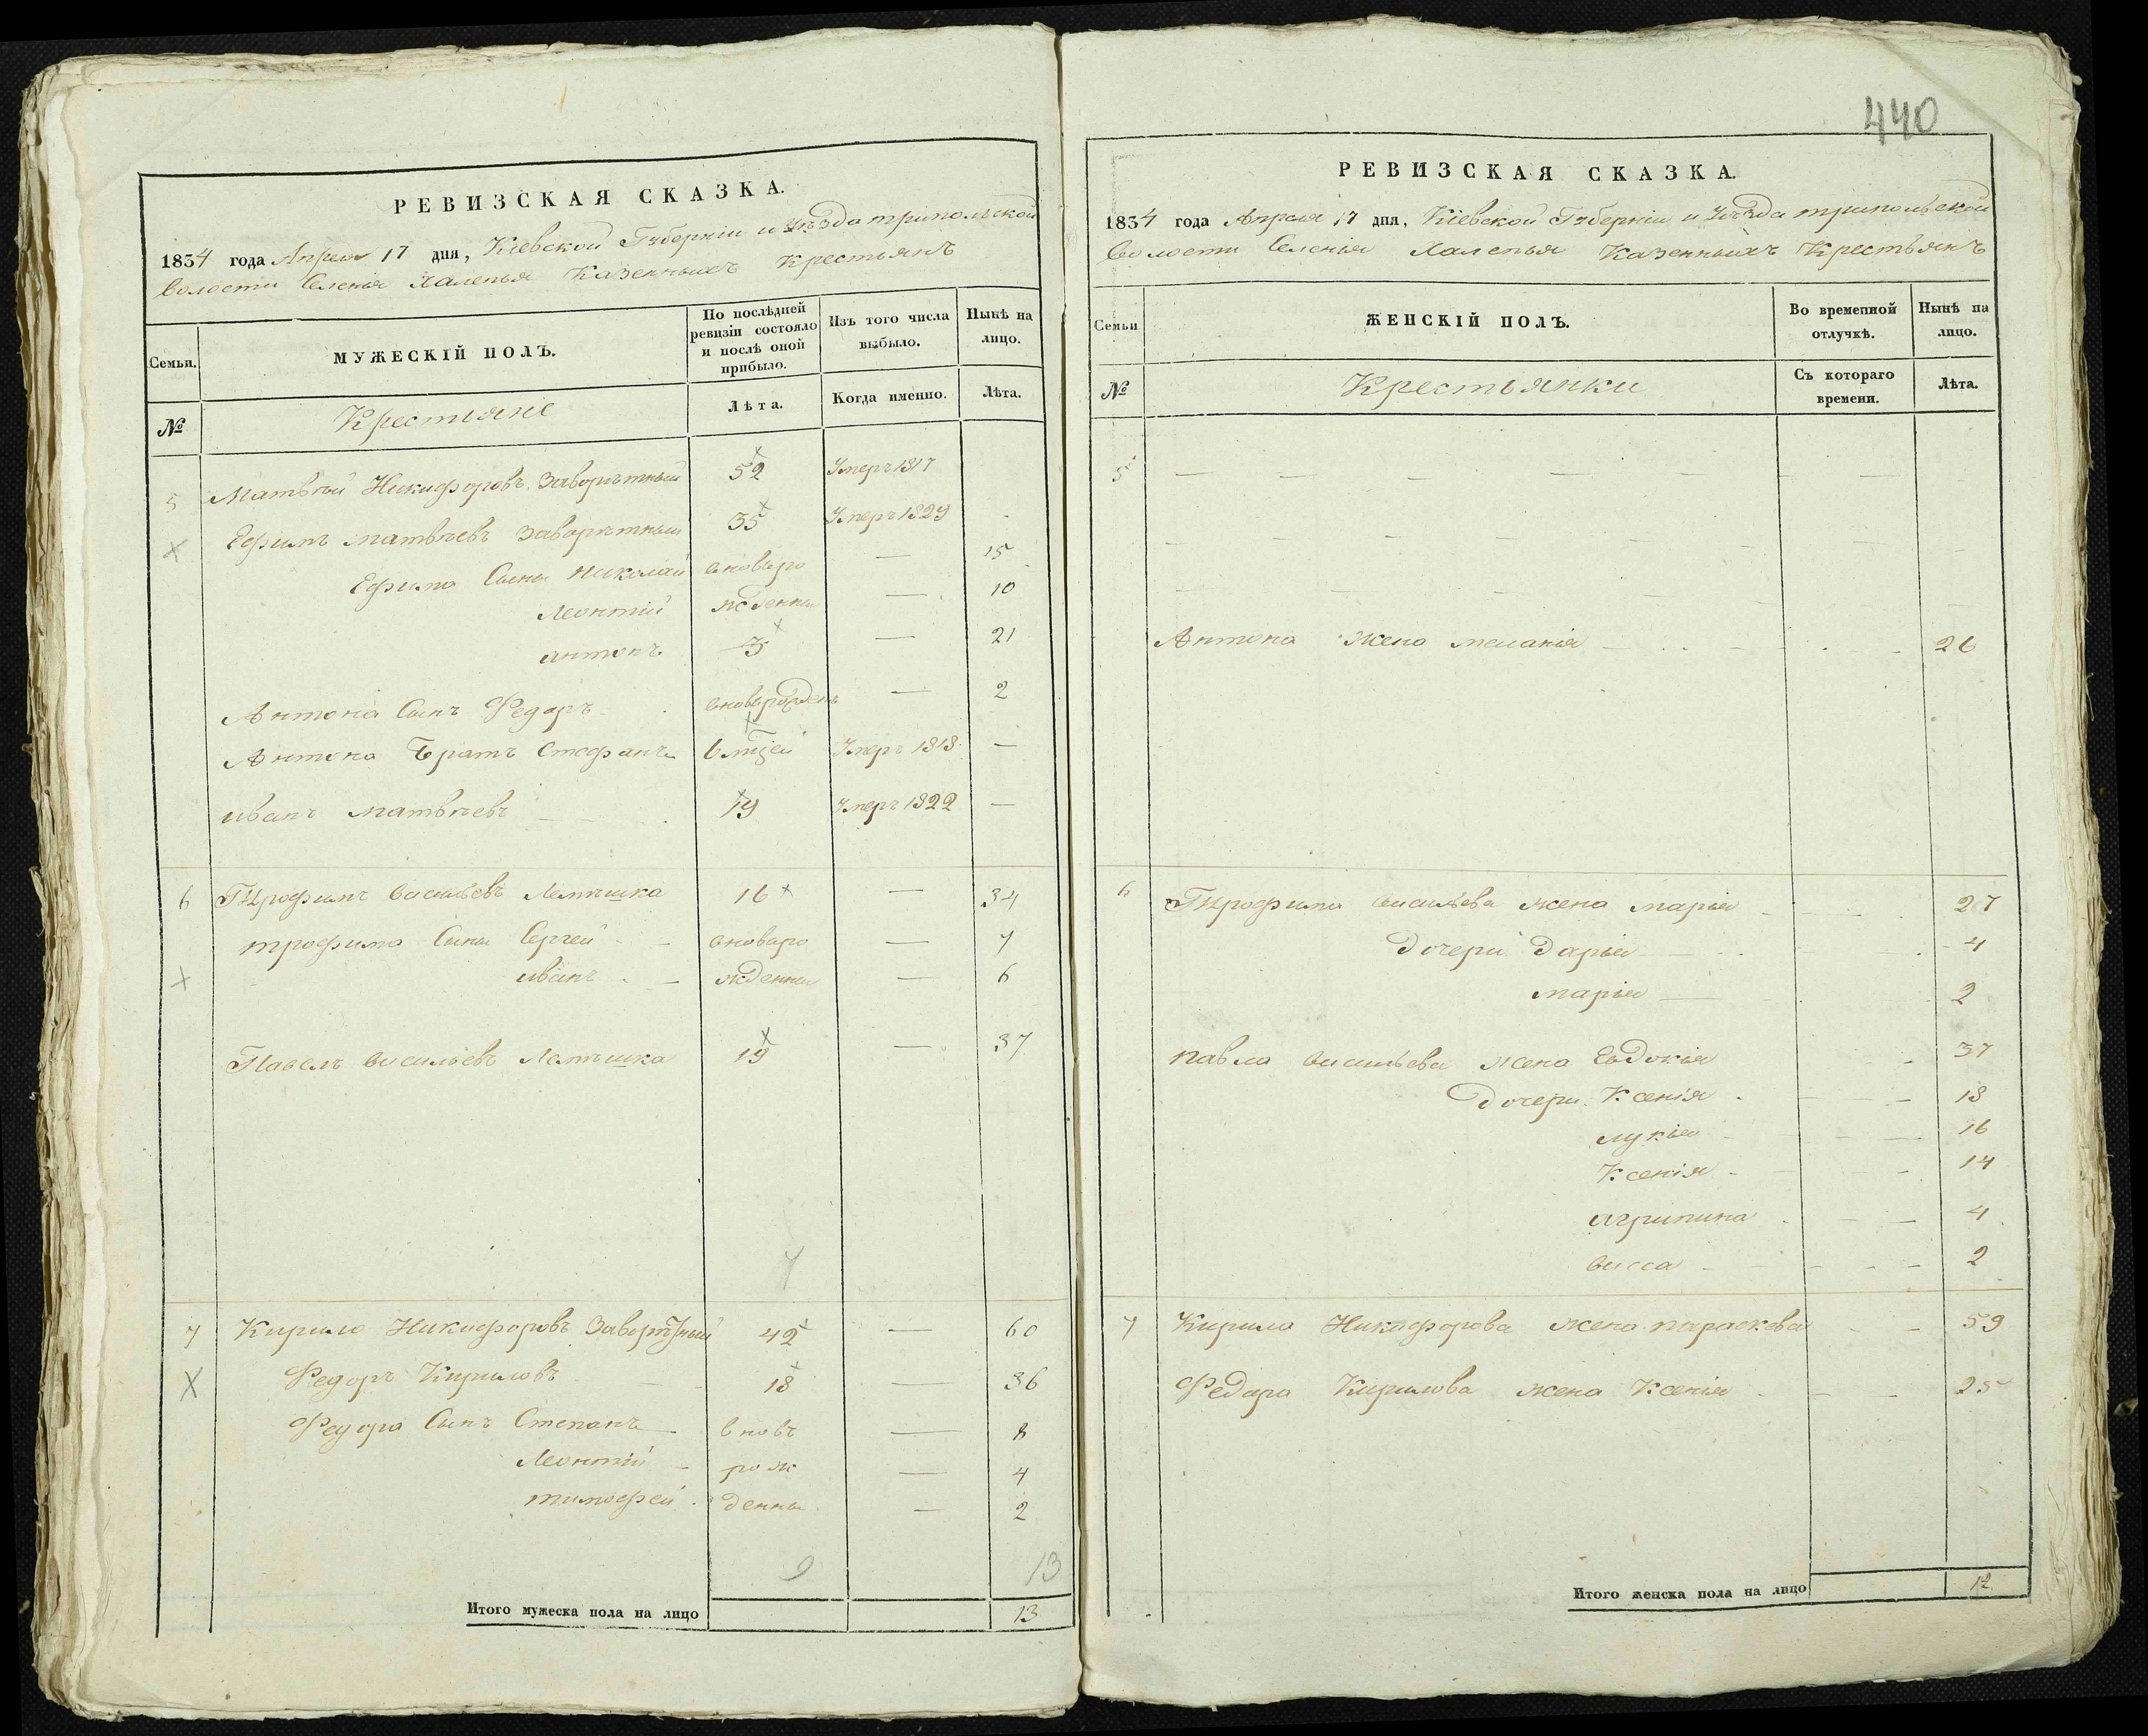 440
РЕВИЗСКАЯ СКАЗКА.
1834 года Апреля 17 дня, Кіевской Губерніи и Уѣзда трипольской
волости Селенія Халепья Казенныхъ Крестьянъ
Семьи.
МУЖЕСКІЙ ПОЛЪ.
По послѣдней ревизіи состояло и послѣ оной прибыло.
Изъ того числа выбыло.
Нынѣ на лицо.
№
Крестьяне
Лѣта.
Когда именно.
Лѣта.
5 Матвѣй Никифоровъ Заворѣтный 52 Умеръ 1817
Ефимъ матвѣевъ Заворѣтный 35 Умеръ 1829
Ефима Сыны Николай вновьро — 15
Леонтій жденны — 10
антонъ 3 — 21
Антона Сынъ Федоръ вноврожден — 2
Антона Братъ Стефанъ Умеръ 1818 —
иванъ матвѣевъ 19 Умеръ 1822 —
6 Трофимъ васильевъ 16 — 34
трофима Сыны Сергей вноворо — 7
иванъ жденны — 6
Павелъ васильевъ 19 — 37
7
7 Кирило Никифоровъ 42 — 60
Федоръ Кириловъ 18 — 36
Федора Сынъ Степанъ вновь — 8
Леонтій рож — 4
тимофей денны — 2
9 13
Итого мужеска пола на лицо 13
РЕВИЗСКАЯ СКАЗКА.
1834 года Апреля 17 дня, Кіевской Губерніи и Уѣзда трипольской
волости Селенія Халепья Казенныхъ Крестьянъ
Семьи
ЖЕНСКІЙ ПОЛЪ.
Во временной отлучкѣ.
Нынѣ на лицо.
№
Крестьянки
Съ котораго времени.
Лѣта.
5
Антона жена меланія 26
6 Трофима васильева жена марья 27
дочери дарья 4
марья 2
павла васильева жена Евдокія 37
дочери Ксенія 18
лукья 16
Ксенія 14
агрипина 4
васса 2
7 Кирила Никифорова жена параскева 59
Федора Кирилова жена Ксенія 25
Итого женска пола на лицо 12